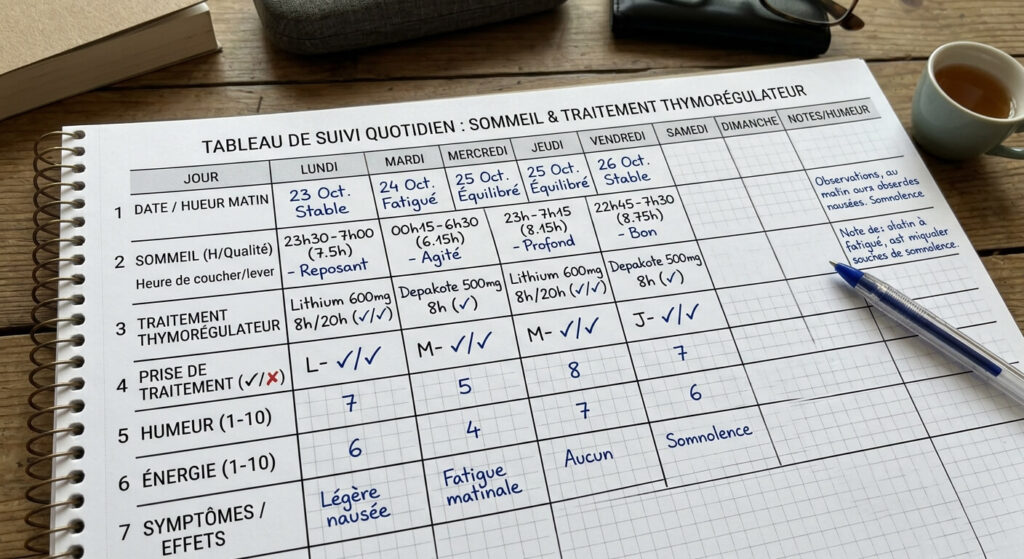 TABLEAU DE SUIVI QUOTIDIEN : SOMMEIL & TRAITEMENT THYMORÉGULATEUR
JOUR
LUNDI
MARDI
MERCREDI
JEUDI
VENDREDI
SAMEDI
DIMANCHE
NOTES/HUMEUR
1 DATE / HUEUR MATIN
23 Oct.
Stable
24 Oct.
Fatigué
25 Oct.
Équilibré
25 Oct.
Équilibré
26 Oct.
Stable
Observations, au
matin aura obserdes
nausées. Somnolence
2 SOMMEIL (H/Qualité)
Heure de coucher/lever
23h30-7h00
(7.5h)
- Reposant
00h15-6h30
(6.15h)
- Agité
23h-7h45
(8.15h)
- Profond
22h45-7h30
(8.75h)
- Bon
Note de: olatin à
fatigué, ast miqualer
souches de somnolence.
3 TRAITEMENT
THYMORÉGULATEUR
Lithium 600mg
8h/20h (✓/✓)
Depakote 500mg
8h (✓)
Lithium 600mg
8h/20h (✓/✓)
Depakote 500mg
8h (✓)
4 PRISE DE
TRAITEMENT (✓/✗)
L- ✓/✓
M- ✓/✓
M- ✓/✓
J- ✓/✓
5 HUMEUR (1-10)
7
5
8
7
6 ÉNERGIE (1-10)
6
4
7
6
7 SYMPTÔMES /
EFFETS
Légère
nausée
Fatigue
matinale
Aucun
Somnolence